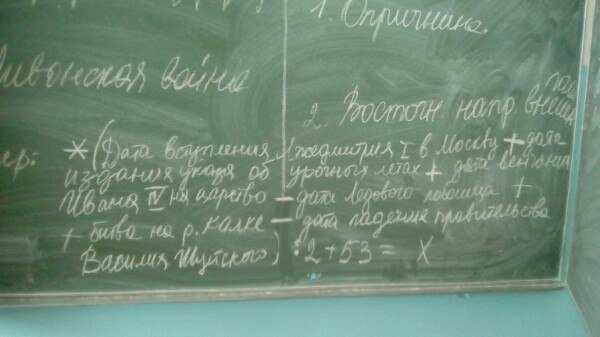 1. Опричнина
Ливонская война
2. Восточн напр. внешн
ер: * (Дата вступления Лжедмитрия I в Москву + дата
издания указа об урочных летах + дата
Ивана IV на царство – дата ледового побоища +
+ битва на р. Калке – дата падения правительства
Василия Шуйского) : 2 + 53 = X